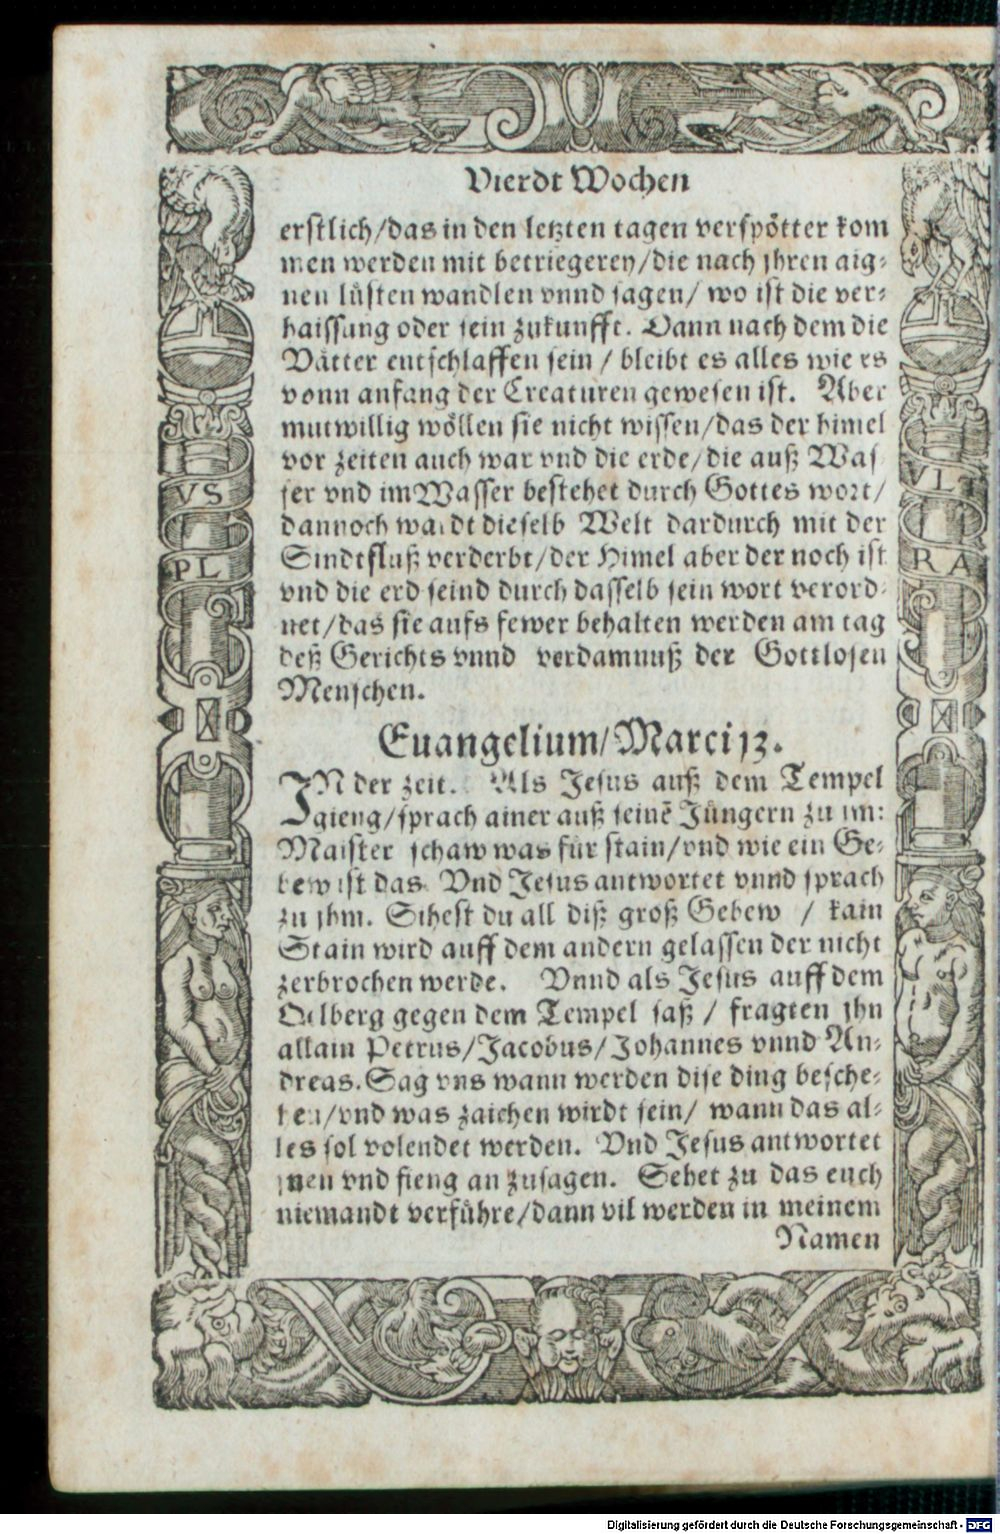 Vierdt Wochen
erstlich/das in den letzten tagen verspötter kom
men werden mit betriegerey/die nach jhren aig⸗
nen lüsten wandlen vnnd sagen/ wo ist die ver⸗
haissung oder sein zukunfft. Dann nach dem die
Vätter entschlaffen sein / bleibt es alles wie es
vonn anfang der Creaturen gewesen ist. Aber
mutwillig wöllen sie nicht wissen/das der himel
vor zeiten auch war vnd die erde/die auß Was
ser vnd im Wasser bestehet durch Gottes wort/
dannoch wardt dieselb Welt dardurch mit der
Sindtfluß verderbt/der Himel aber der noch ist
vnd die erd seind durch dasselb sein wort verord⸗
net/das sie aufs fewer behalten werden am tag
deß Gerichts vnnd verdamnuß der Gottlosen
Menschen.
Euangelium/Marci 13.
JN der zeit. Als Jesus auß dem Tempel
gieng/sprach ainer auß seinẽ Jüngern zu jm:
Maister schaw was für stain/vnd wie ein Ge⸗
bew ist das. Vnd Jesus antwortet vnnd sprach
zu jhm. Sihest du all diß groß Gebew / kain
Stain wird auff dem andern gelassen der nicht
zerbrochen werde. Vnnd als Jesus auff dem
Oelberg gegen dem Tempel saß / fragten jhn
allain Petrus/Jacobus/Johannes vnnd An⸗
dreas. Sag vns wann werden dise ding besche⸗
hen/vnd was zaichen wirdt sein/ wann das al⸗
les sol volendet werden. Vnd Jesus antwortet
jnen vnd fieng an zusagen. Sehet zu das euch
niemandt verführe/dann vil werden in meinem
Namen
VS
PL
VLT
RA
Digitalisierung gefördert durch die Deutsche Forschungsgemeinschaft - DFG